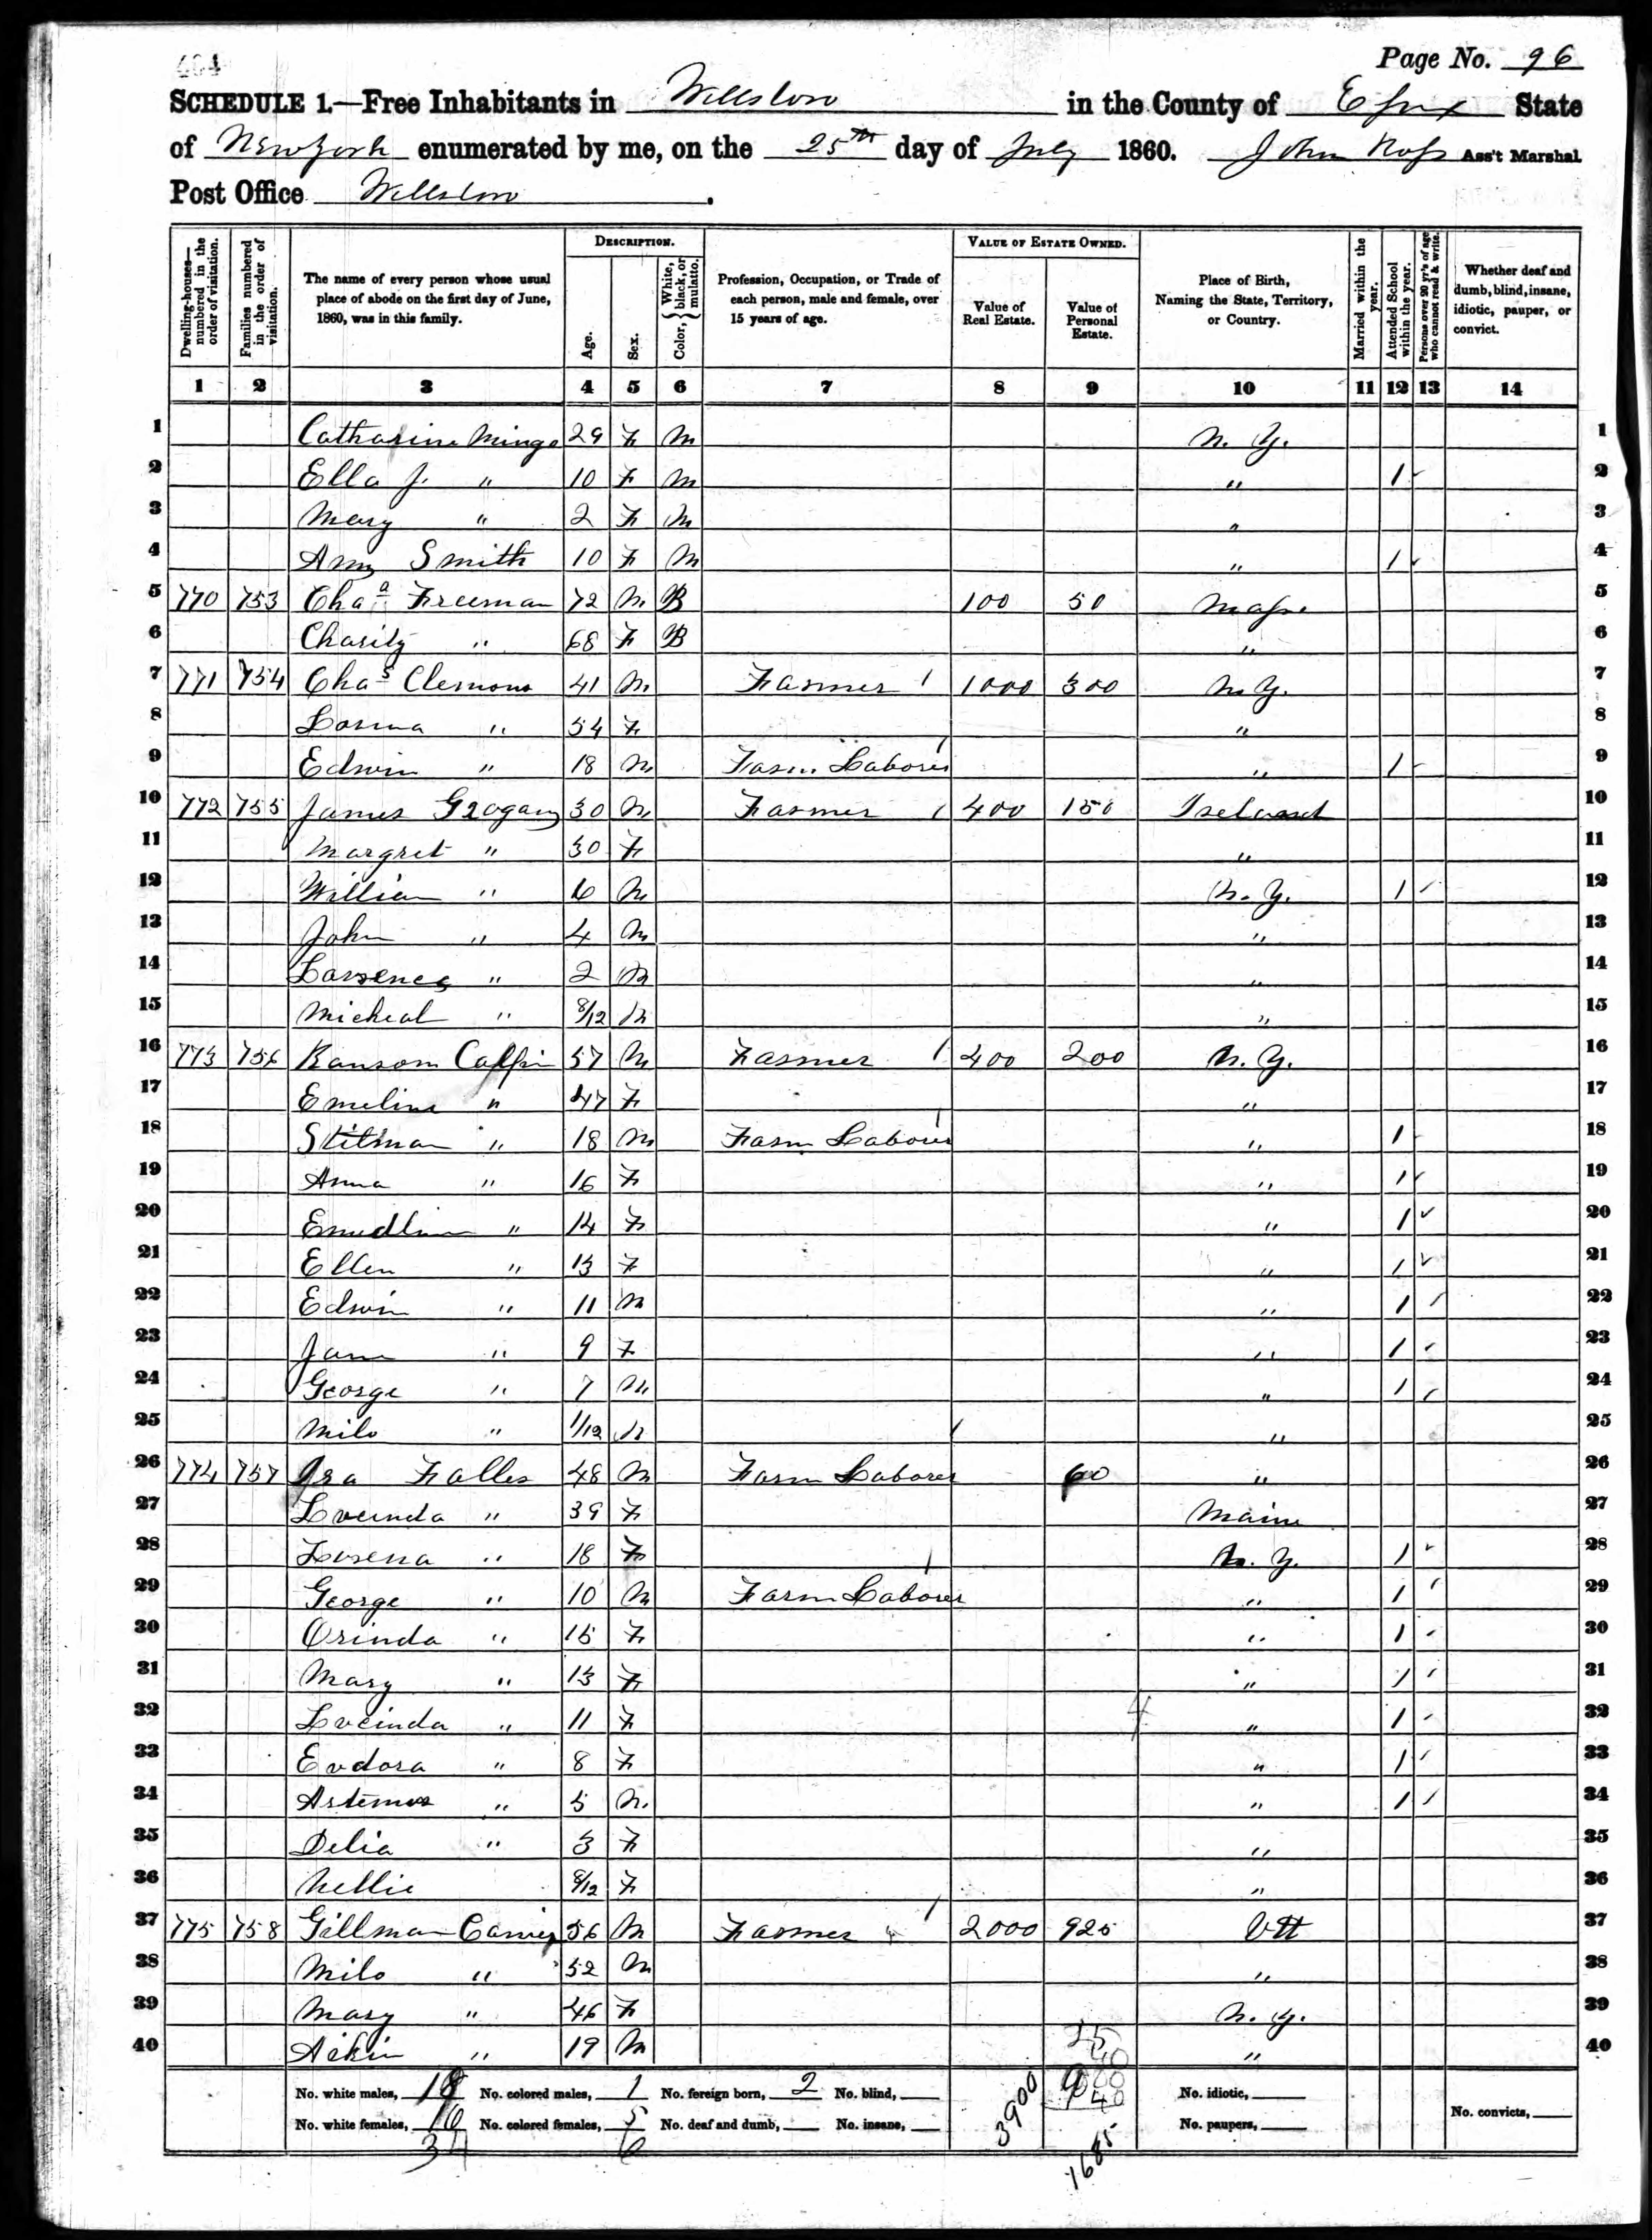 464
Page No. 96
SCHEDULE 1.—Free Inhabitants in Willsboro in the County of Essex State
of New York enumerated by me, on the 25th day of July 1860. John Ross Ass't Marshal.
Post Office Willsboro.
Dwelling-houses—numbered in the order of visitation. Families numbered in the order of visitation. The name of every person whose usual place of abode on the first day of June, 1860, was in this family. DESCRIPTION. Age. Sex. Color, { White, black, or mulatto. Profession, Occupation, or Trade of each person, male and female, over 15 years of age. VALUE OF ESTATE OWNED. Value of Real Estate. Value of Personal Estate. Place of Birth, Naming the State, Territory, or Country. Married within the year. Attended School within the year. Persons over 20 y'rs of age who cannot read & write. Whether deaf and dumb, blind, insane, idiotic, pauper, or convict.
1 2 3 4 5 6 7 8 9 10 11 12 13 14
1 Catharine Mingo 29 F M N. Y. 1
2 Ella J. " 10 F M " 1 2
3 Mary " 2 F M " 3
4 Amy Smith 10 F M " 1 4
5 770 753 Chas Freeman 72 M B 100 50 Mass. 5
6 Charity " 68 F B " 6
7 771 754 Chas Clemons 41 M Farmer 1000 300 N. Y. 7
8 " 54 F " 8
9 Edwin " 18 M Farm Laborer " 1 9
10 772 755 James Grogan 30 M Farmer 400 150 Ireland 10
11 Margret " 30 F " 11
12 William " 6 M N. Y. 1 12
13 John " 4 M " 13
14 Larrence " 2 M " 14
15 Micheal " 8/12 M " 15
16 773 756 Ransom 57 M Farmer 400 200 N. Y. 16
17 Emeline " 47 F " 17
18 Stilman " 18 M Farm Laborer " 1 18
19 Anna " 16 F " 1 19
20 " 14 F " 1 20
21 Ellen " 13 F " 1 21
22 Edwin " 11 M " 1 22
23 Jane " 9 F " 1 23
24 George " 7 M " 1 24
25 Milo " 1/12 M " 25
26 774 757 Ira Falles 48 M Farm Laborer 60 " 26
27 Lucinda " 39 F Maine 27
28 " 18 F N. Y. 1 28
29 George " 10 M Farm Laborer " 1 29
30 Orinda " 15 F " 1 30
31 Mary " 13 F " 1 31
32 Lucinda " 11 F " 1 32
33 Eudora " 8 F " 1 33
34 Artemus " 5 M " 1 34
35 Delia " 3 F " 35
36 Nellie 8/12 F " 36
37 775 758 Gillman 56 M Farmer 2000 925 Vtt 37
38 Milo " 52 M " 38
39 Mary " 46 F N. Y. 39
40 " 19 M " 40
No. white males, 18 No. colored males, 1 No. foreign born, 2 No. blind, No. idiotic,
No. white females, 16 No. colored females, 5 No. deaf and dumb, No. insane, No. paupers, No. convicts,
34 6 3900 1685